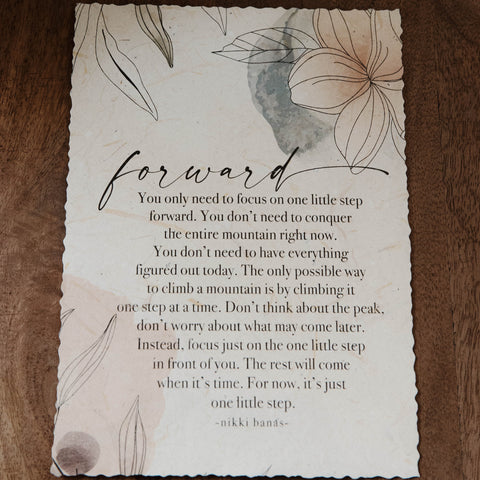 forward
You only need to focus on one little step
forward. You don't need to conquer
the entire mountain right now.
You don't need to have everything
figured out today. The only possible way
to climb a mountain is by climbing it
one step at a time. Don't think about the peak,
don't worry about what may come later.
Instead, focus just on the one little step
in front of you. The rest will come
when it's time. For now, it's just
one little step.
-nikki banas-